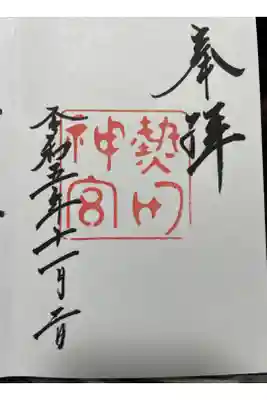 奉拝
熱田
神宮
令和五年十一月二日